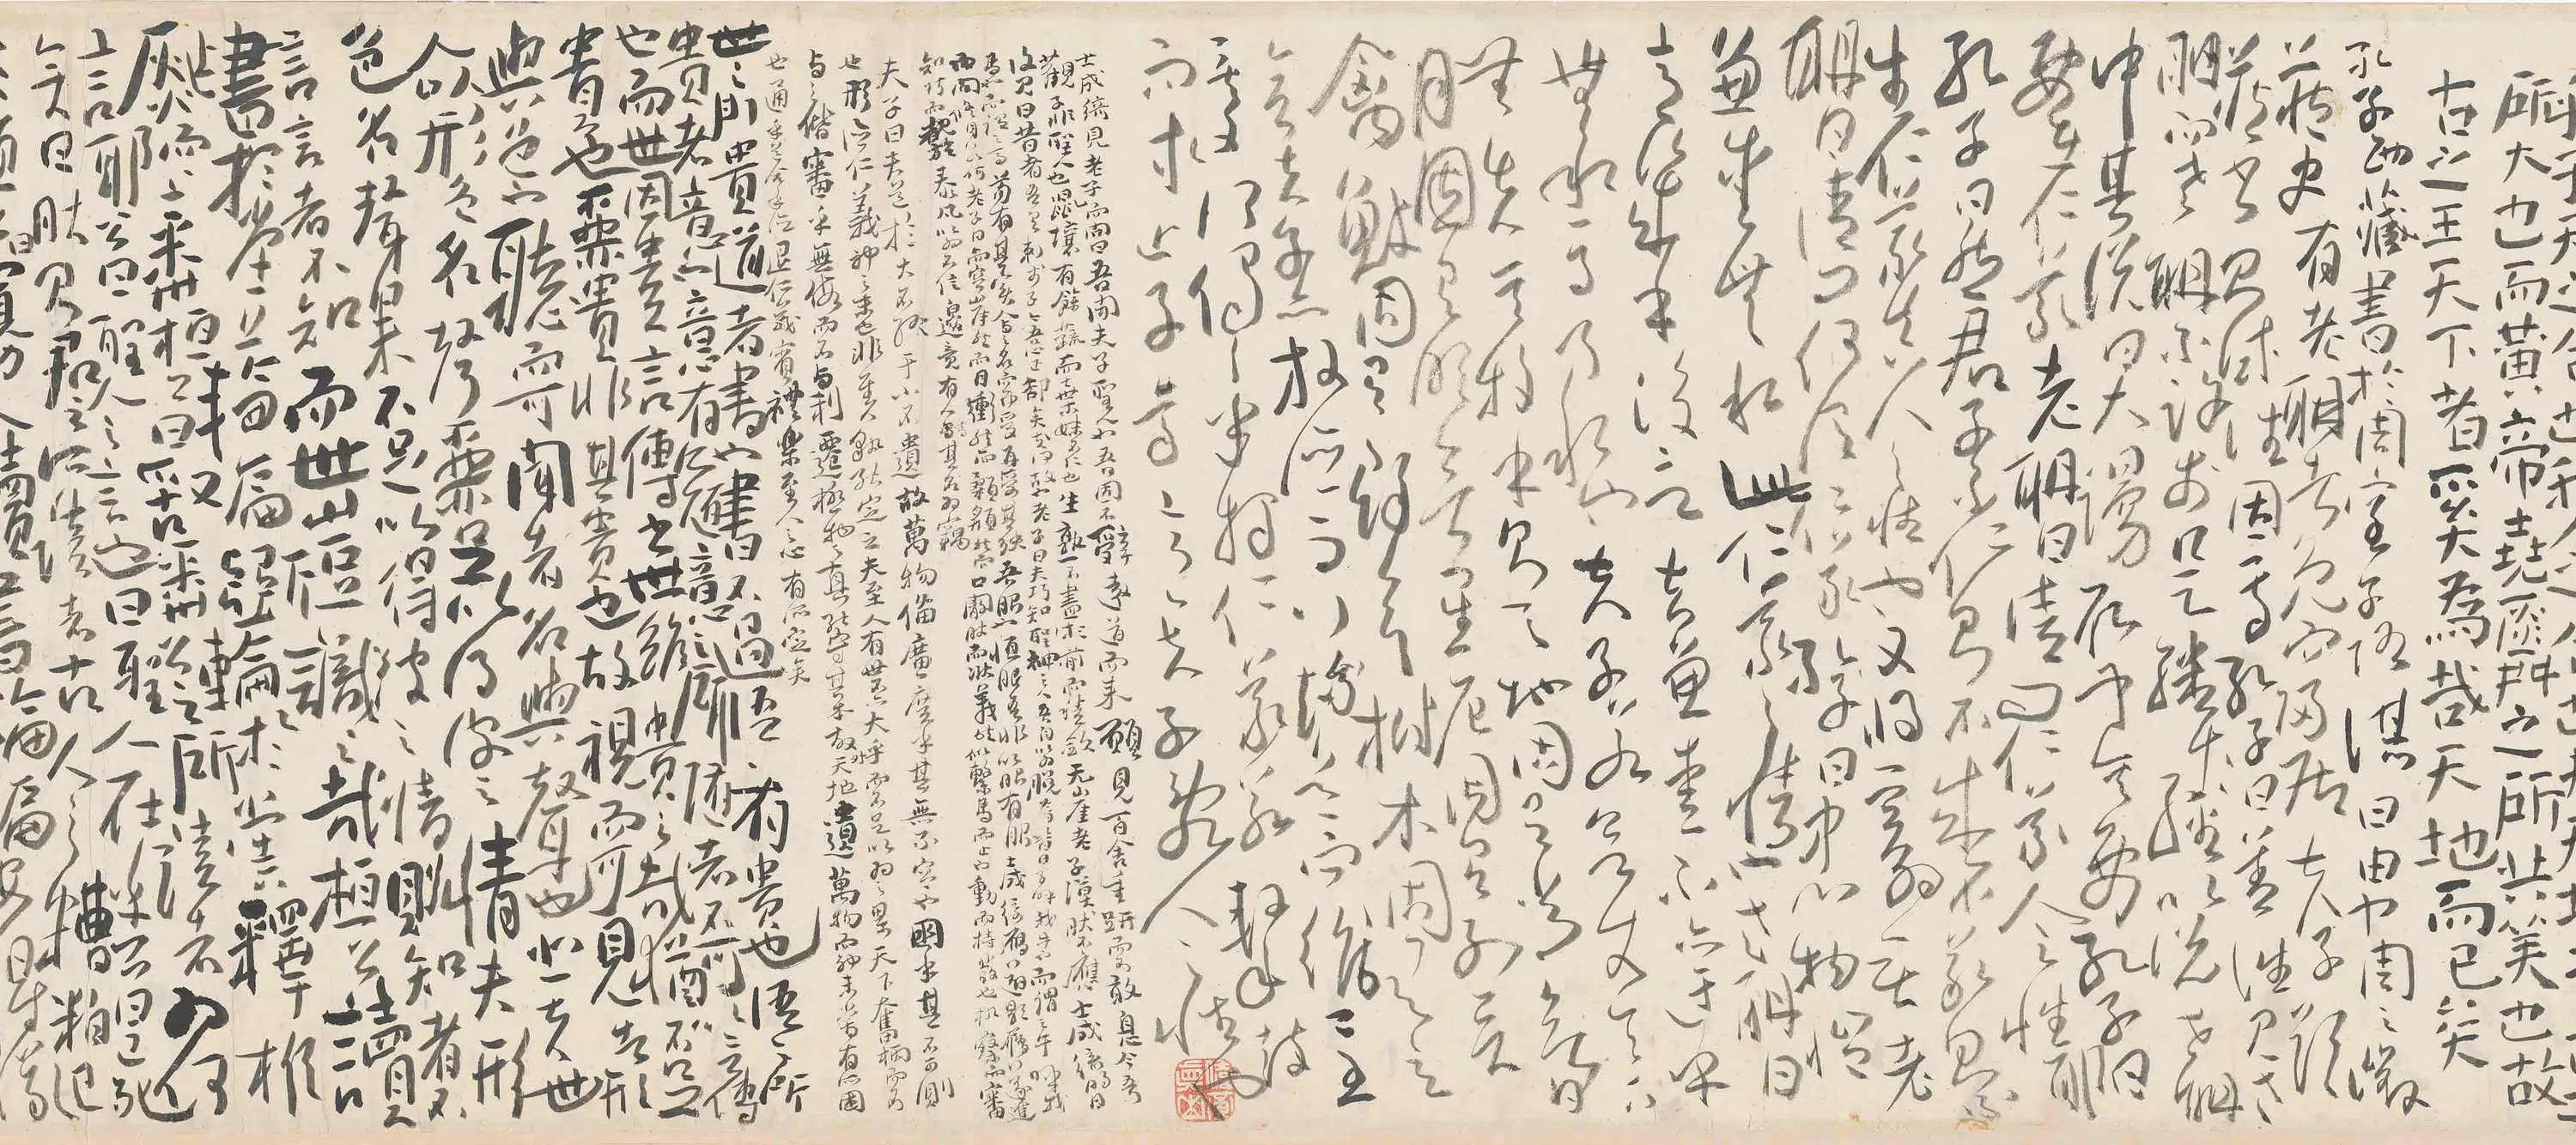 所大也而黃帝堯舜之所共美也故
古之王天下者奚為哉天地而已矣
孔子西藏書於周室子路謀曰由也聞周之徵
藏史有老聃者免而歸居夫子欲
藏書則試往因焉孔子曰善往見老
聃而老聃不許於是繙十二經以說老聃
中其說曰大謾願聞其要孔子曰
要在仁義老聃曰請問仁義人之性耶
孔子曰然君子不仁則不成不義則不
生仁義真人之性也又將奚為矣老
聃曰請問何謂仁義孔子曰中心物愷
兼愛無私此仁義之情也老聃曰
意幾乎後言夫兼愛不亦迂乎
無私焉乃私也夫子若欲使天下
無失其牧乎則天地固有常矣日
月固有明矣星辰固有列矣
禽獸固有群矣樹木固有立
矣夫子亦放德而行循道而趨已至
矣又何偈偈乎揭仁義若擊鼓
而求亡子焉意夫子亂人之性也
士成綺見老子而問曰吾聞夫子聖人也吾固不辭遠道而來願見百舍重趼而不敢息今吾
觀子非聖人也鼠壤有餘蔬而棄妹不仁也生熟不盡於前而積斂無崖老子漠然不應士成綺明日
復見曰昔者吾有刺於子今吾心正郤矣何故也老子曰夫巧知神聖之人吾自以為脫焉昔者子呼我牛也而謂之牛呼我
馬也而謂之馬苟有其實人與之名而弗受再受其殃吾服也恒服吾非以服有服士成綺鴈行避影履行遂進
而問修身若何老子曰而容崖然而目衝然而顙頯然而口闞然而狀義然似繫馬而止也動而持發也機察而審
知巧而覩於泰凡以為不信邊竟有人焉其名為竊
夫子曰夫道於大不終于小不遺故萬物備廣廣乎其無不容也淵乎其不可測
也形德仁義神之末也非至人孰能定之夫至人有世不亦大乎而不足以為之累天下奮柄而不
與之偕審乎無假而不與利遷極物之真能守其本故天地遺萬物而神未嘗有所困
也通乎道合乎德退仁義賓禮樂至人之心有所定矣
世之所貴道者書也書不過語語有貴也語之所
貴者意也意有所隨意之所隨者不可以言傳
也而世因貴言傳書世雖貴之哉猶不足
貴也為其貴非其貴也故視而可見者形
與色也聽而可聞者名與聲也悲夫世
人以形色名聲為足以得彼之情夫形
色名聲果不足以得彼之情則知者不
言言者不知而世豈識之哉桓公讀
書於堂上輪扁斲輪於堂下釋椎
鑿而上問桓公曰敢問公之所讀者為何
言耶公曰聖人之言也曰聖人在乎公曰已死
矣曰然則君之所讀者古人之糟粕已